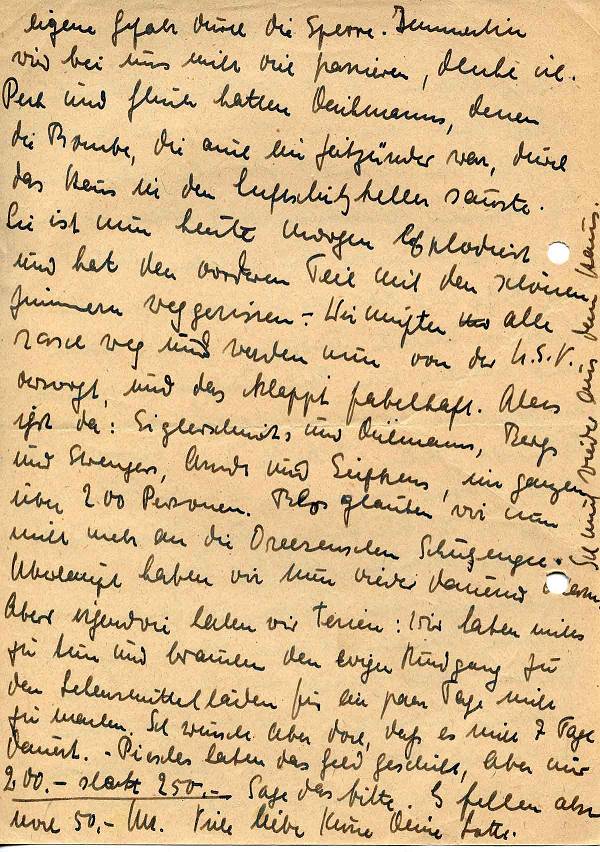 eigene Gefahr durch die Sperre. Immerhin
wird bei uns nicht viel passieren, denke ich.
Pech und Glück hatten Deilmanns, denen
die Bombe, die auch ein Zeitzünder war, durch
das Haus in den Luftschutzkeller sauste.
Sie ist nun heute morgen explodiert
und hat den vorderen Teil mit den schönen
Zimmern weggerissen. Wir mußten alle
rasch weg und werden nun von der N.S.V.
versorgt, und das klappt fabelhaft. Alles
ist da: und Deilmanns, Bergs
und Swengers, und im ganzen
über 200 Personen. Blos glauben wir nun
nicht mehr an die
Überhaupt haben wir nun wieder dauernd Alarm.
Aber irgendwie haben wir Ferien: Wir haben nichts
zu tun und brauchen den ewigen Rundgang zu
den Lebensmittelläden für ein paar Tage nicht
zu machen. Ich wünsche aber doch, daß es nicht 7 Tage
dauert. - haben das Geld geschickt, aber nur
200.- statt 250.- Sage das bitte. Es fehlen also
noch 50,- M. Viele liebe Deine Lotte.
Ich muß wieder aus dem Haus.